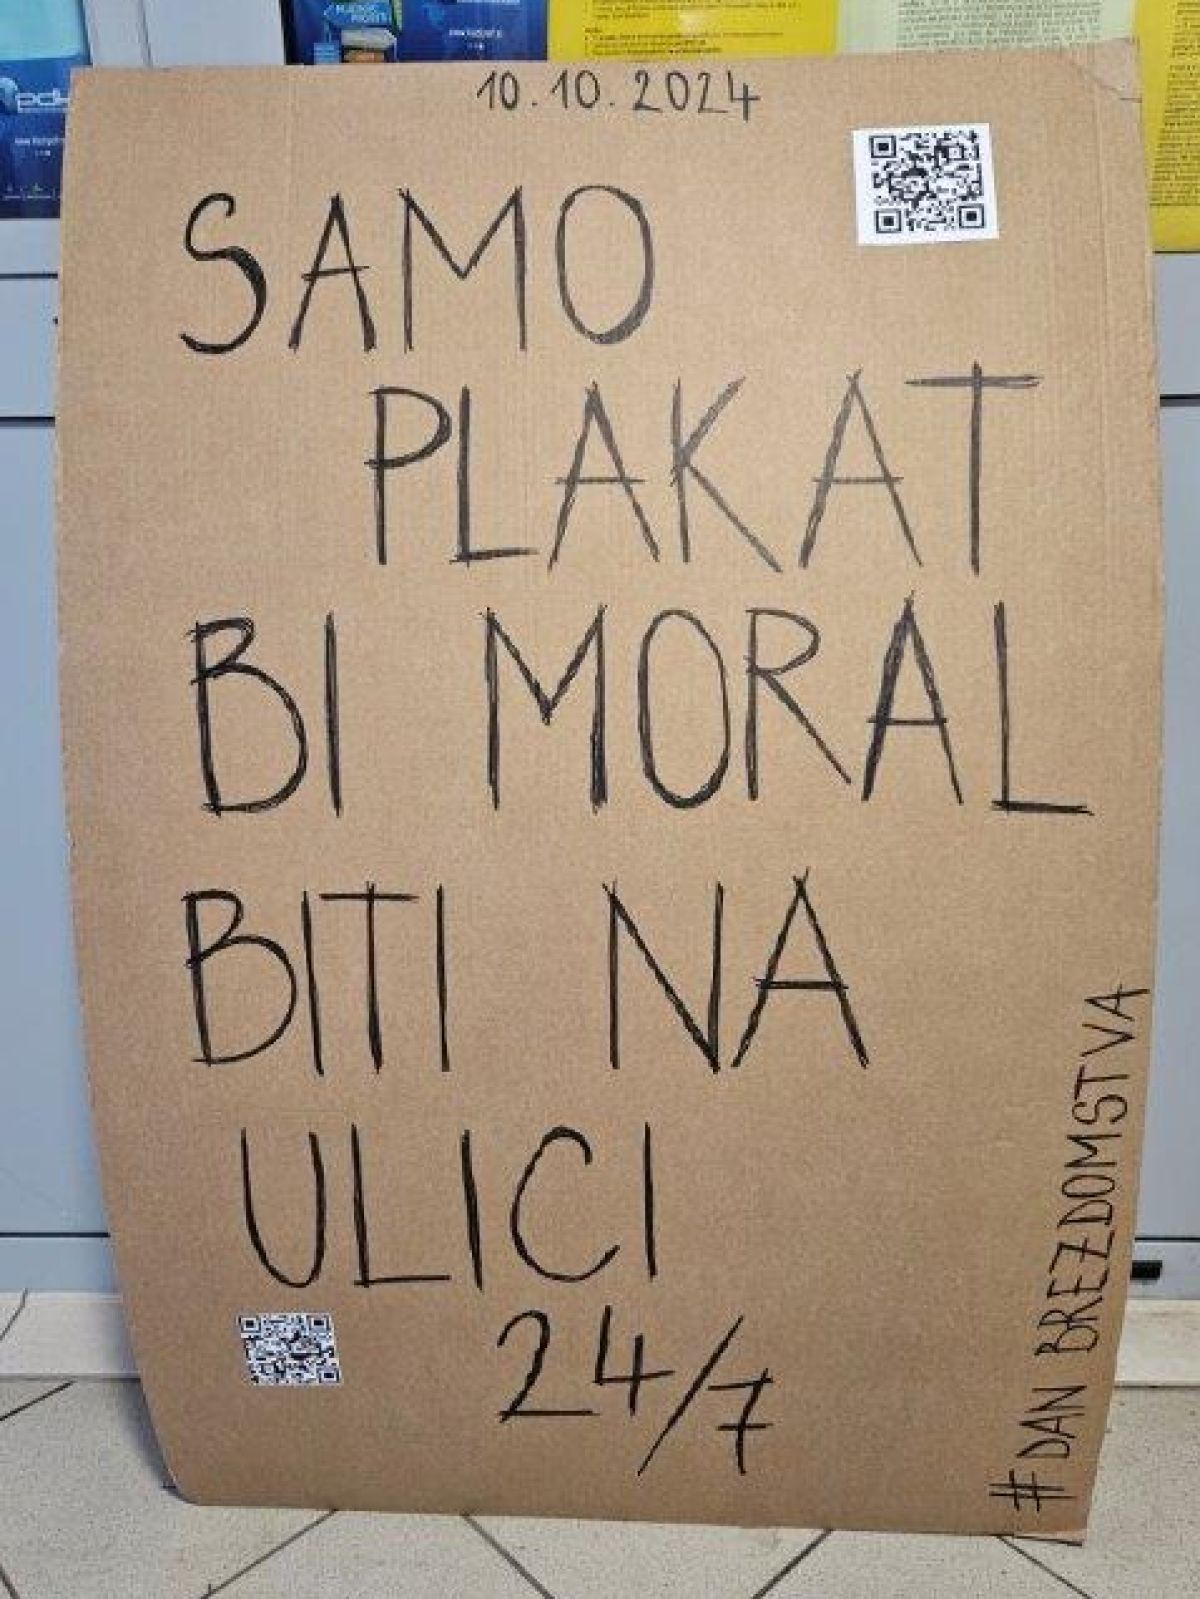 10.10.2024
SAMO
PLAKAT
BI MORAL
BITI NA
ULICI
24/7
#DAN BREZDOMSTVA